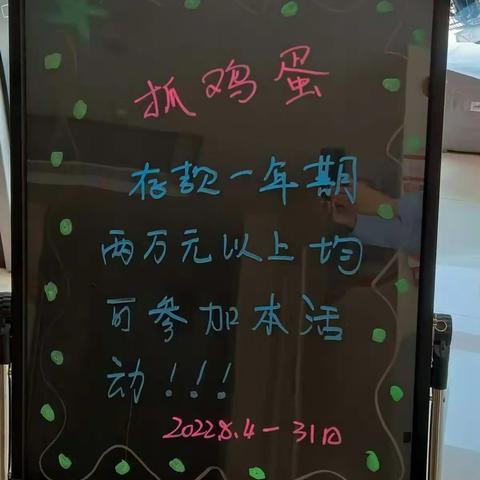 抓鸡蛋
存款一年期
两万元以上均
可参加本活
动!!!
2022.8.4-31日